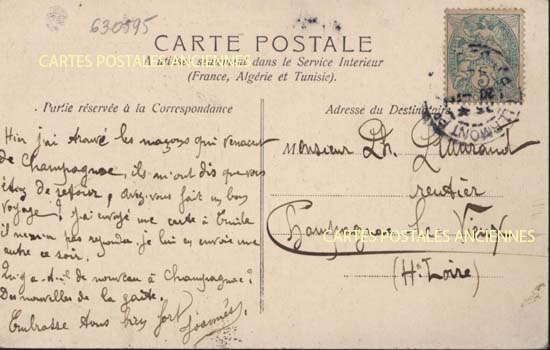 630595
CARTE POSTALE
CARTES POSTALES ANCIENNES
dans le Service Interieur
(France, Algérie et Tunisie).
Partie réservée à la Correspondance
Adresse du Destinataire
5
CLERMONT
Hier j'ai trouvé les maçons qui venaient
de Champagnac, ils m'ont dis que vous
étiez de retour, Avez vous fait un bon
voyage? J'ai envoyé une carte à Emile
il m'en a pas repondu. je lui en envoie une
autre ce soir.
Qu'y a-t-il de nouveau à Champagnac?
Des nouvelles de la
Embrasse Vous bien fort
Joannès
Monsieur Ph.
rentier
Champagnac le Vieux
CARTES POSTALES ANCIENNES
(Hte Loire)